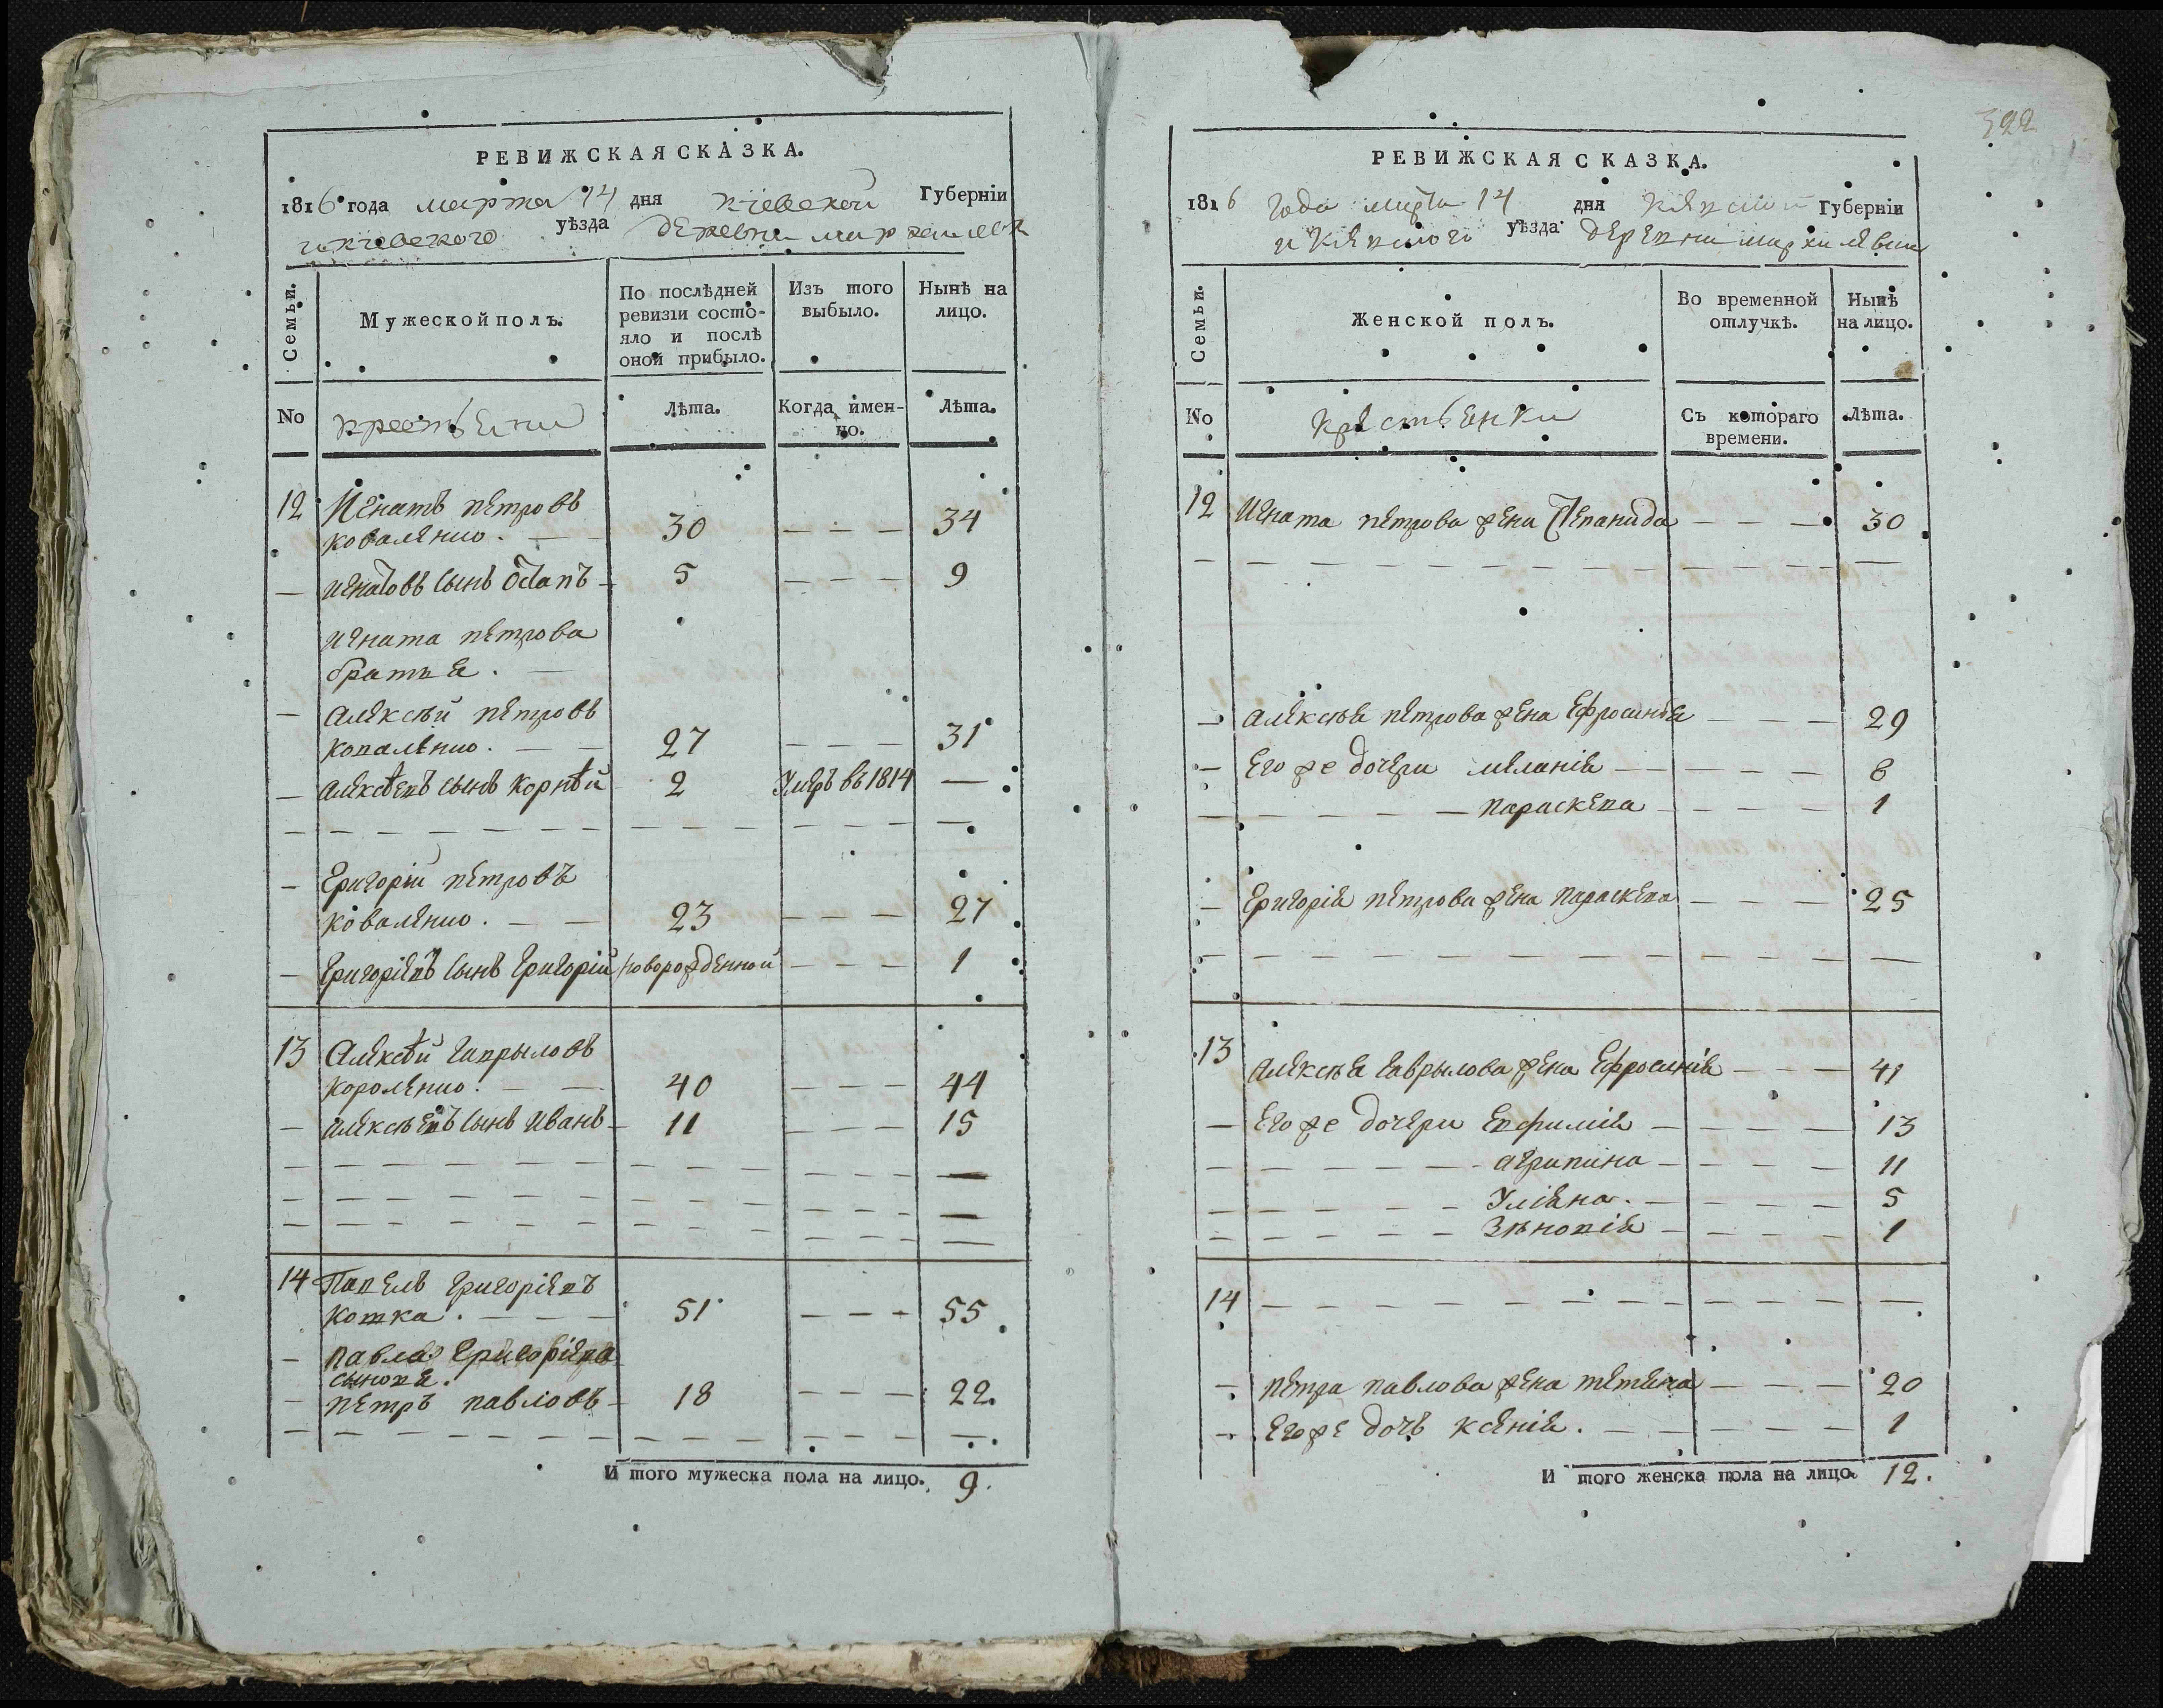 РЕВИЖСКАЯ СКАЗКА.
1816 года марта 14 дня Кіевской Губерніи
и Кіевского уѣзда деревни
Семьи.
Мужеской полъ.
По послѣдней
ревизіи состо-
яло и послѣ
оной прибыло.
Изъ того
выбыло.
Нынѣ на
лицо.
No
крестьяни
Лѣта.
Когда имен-
но.
Лѣта.
12 Игнатъ петровъ
коваленко. — 30 — — — 34
— игнатовъ сынъ Остапъ — 5 — — — 9
игната петрова
братья. —
— алексѣй петровъ
коваленко. — — 27 — — — 31
— алексѣевъ сынъ корнѣй 2 Умеръ въ 1814 —
— григорій петровъ
коваленко. — — 23 — — — 27
— григоріевъ сынъ григорій новорожденной — — — 1
13 Алексѣй гаврыловъ
короленко. — — 40 — — — 44
— алексѣевъ сынъ иванъ — 11 — — — 15
14 Павелъ григоріевъ
котка. — — — 51 — — — 55
— павла григоріева
сыновя.
— петръ павловъ — 18 — — — 22.
И того мужеска пола на лицо. 9.
322
РЕВИЖСКАЯ СКАЗКА.
1816 года марта 14 дня Кіевской Губерніи
и Кіевского уѣзда деревни
Семьи.
Женской полъ.
Во временной
отлучкѣ.
Нынѣ
на лицо.
No
крестьенки
Съ котораго
времени.
Лѣта.
12 Игната петрова жена Степанида — — — 30
— алексѣя петрова жена Ефросинія — — — 29
— Его же дочери меланія — — — — 8
— — — — — — параскева — — — — 1
— григорія петрова жена параскева — — — 25
13 алексѣя гаврылова жена Ефросинія — — — 41
— Его же дочери Евфимія — — — — 13
— — — — — — агрипина — — — — 11
— — — — — — Уліяна. — — — — 5
— — — — — — Зѣновія — — — — 1
14 — — — — — — — — — — — —
— петра павлова жена тетяна — — — 20
— Его же дочь ксенія. — — — — — 1
И того женска пола на лицо 12.